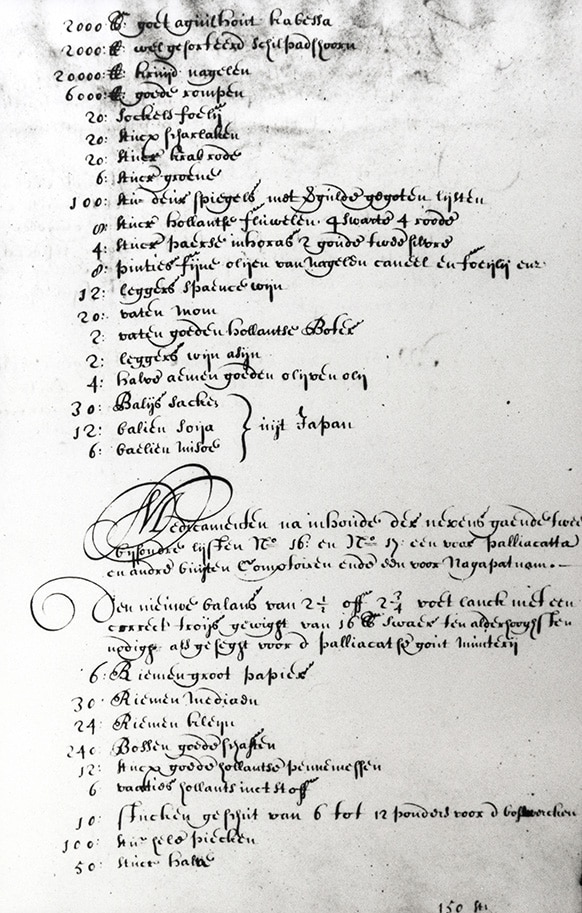 2000 ℔: goet aguilhout kabessa
2000: ℔: wel gesorteerd schilpadshoorn
20000: ℔: kruijd nagelen
6000: ℔: goede rompen
20: Sockels foelij
20: stucx scharlaken
20: stucx krab rode
6: stucx groene
100: stux deur spiegels met vergulde gegoten lijsten
8: stucx hollantse fluwelen 4 swarte 4 roode
4: stucx paerse inhoras 2 goude twee silvre
8: pinties fijne olijen van nagelen caneel en foelij enz
12: leggers spaence wijn
20: vaten mom
2: vaten goeden hollantse Boter
2: leggers wijn asijn
4: halve aemen goeden olijven olij
30: Balijs Sackes
12: balien Soija
6: baelien misoe
uijt Japan
Medicamenten na inhoude der nevens gaende twee
bijsondre lijsten No 16: en No 17: een voor Palliacatta
en andre buijten Comptoiren ende een voor Nagapatnam.
Een nieuwe balans van 2½ off 2¾ voet lanck met een
correct troijs gewight van 16 ℔ swaer ten alderhooghsten
nodigh als geseght voor d Palliacatse gout munterij
6: Riemen groot papier
30: Riemen mediaen
24: Riemen kleijn
240: Bossen goede schaften
12: stucx goede hollantse pennemessen
6 vaaties hollants inct stoff
10: stucken geschut van 6 tot 12 ponders voor d bolwercken
100: stux hele piecken
50: stucx halve
150 st: